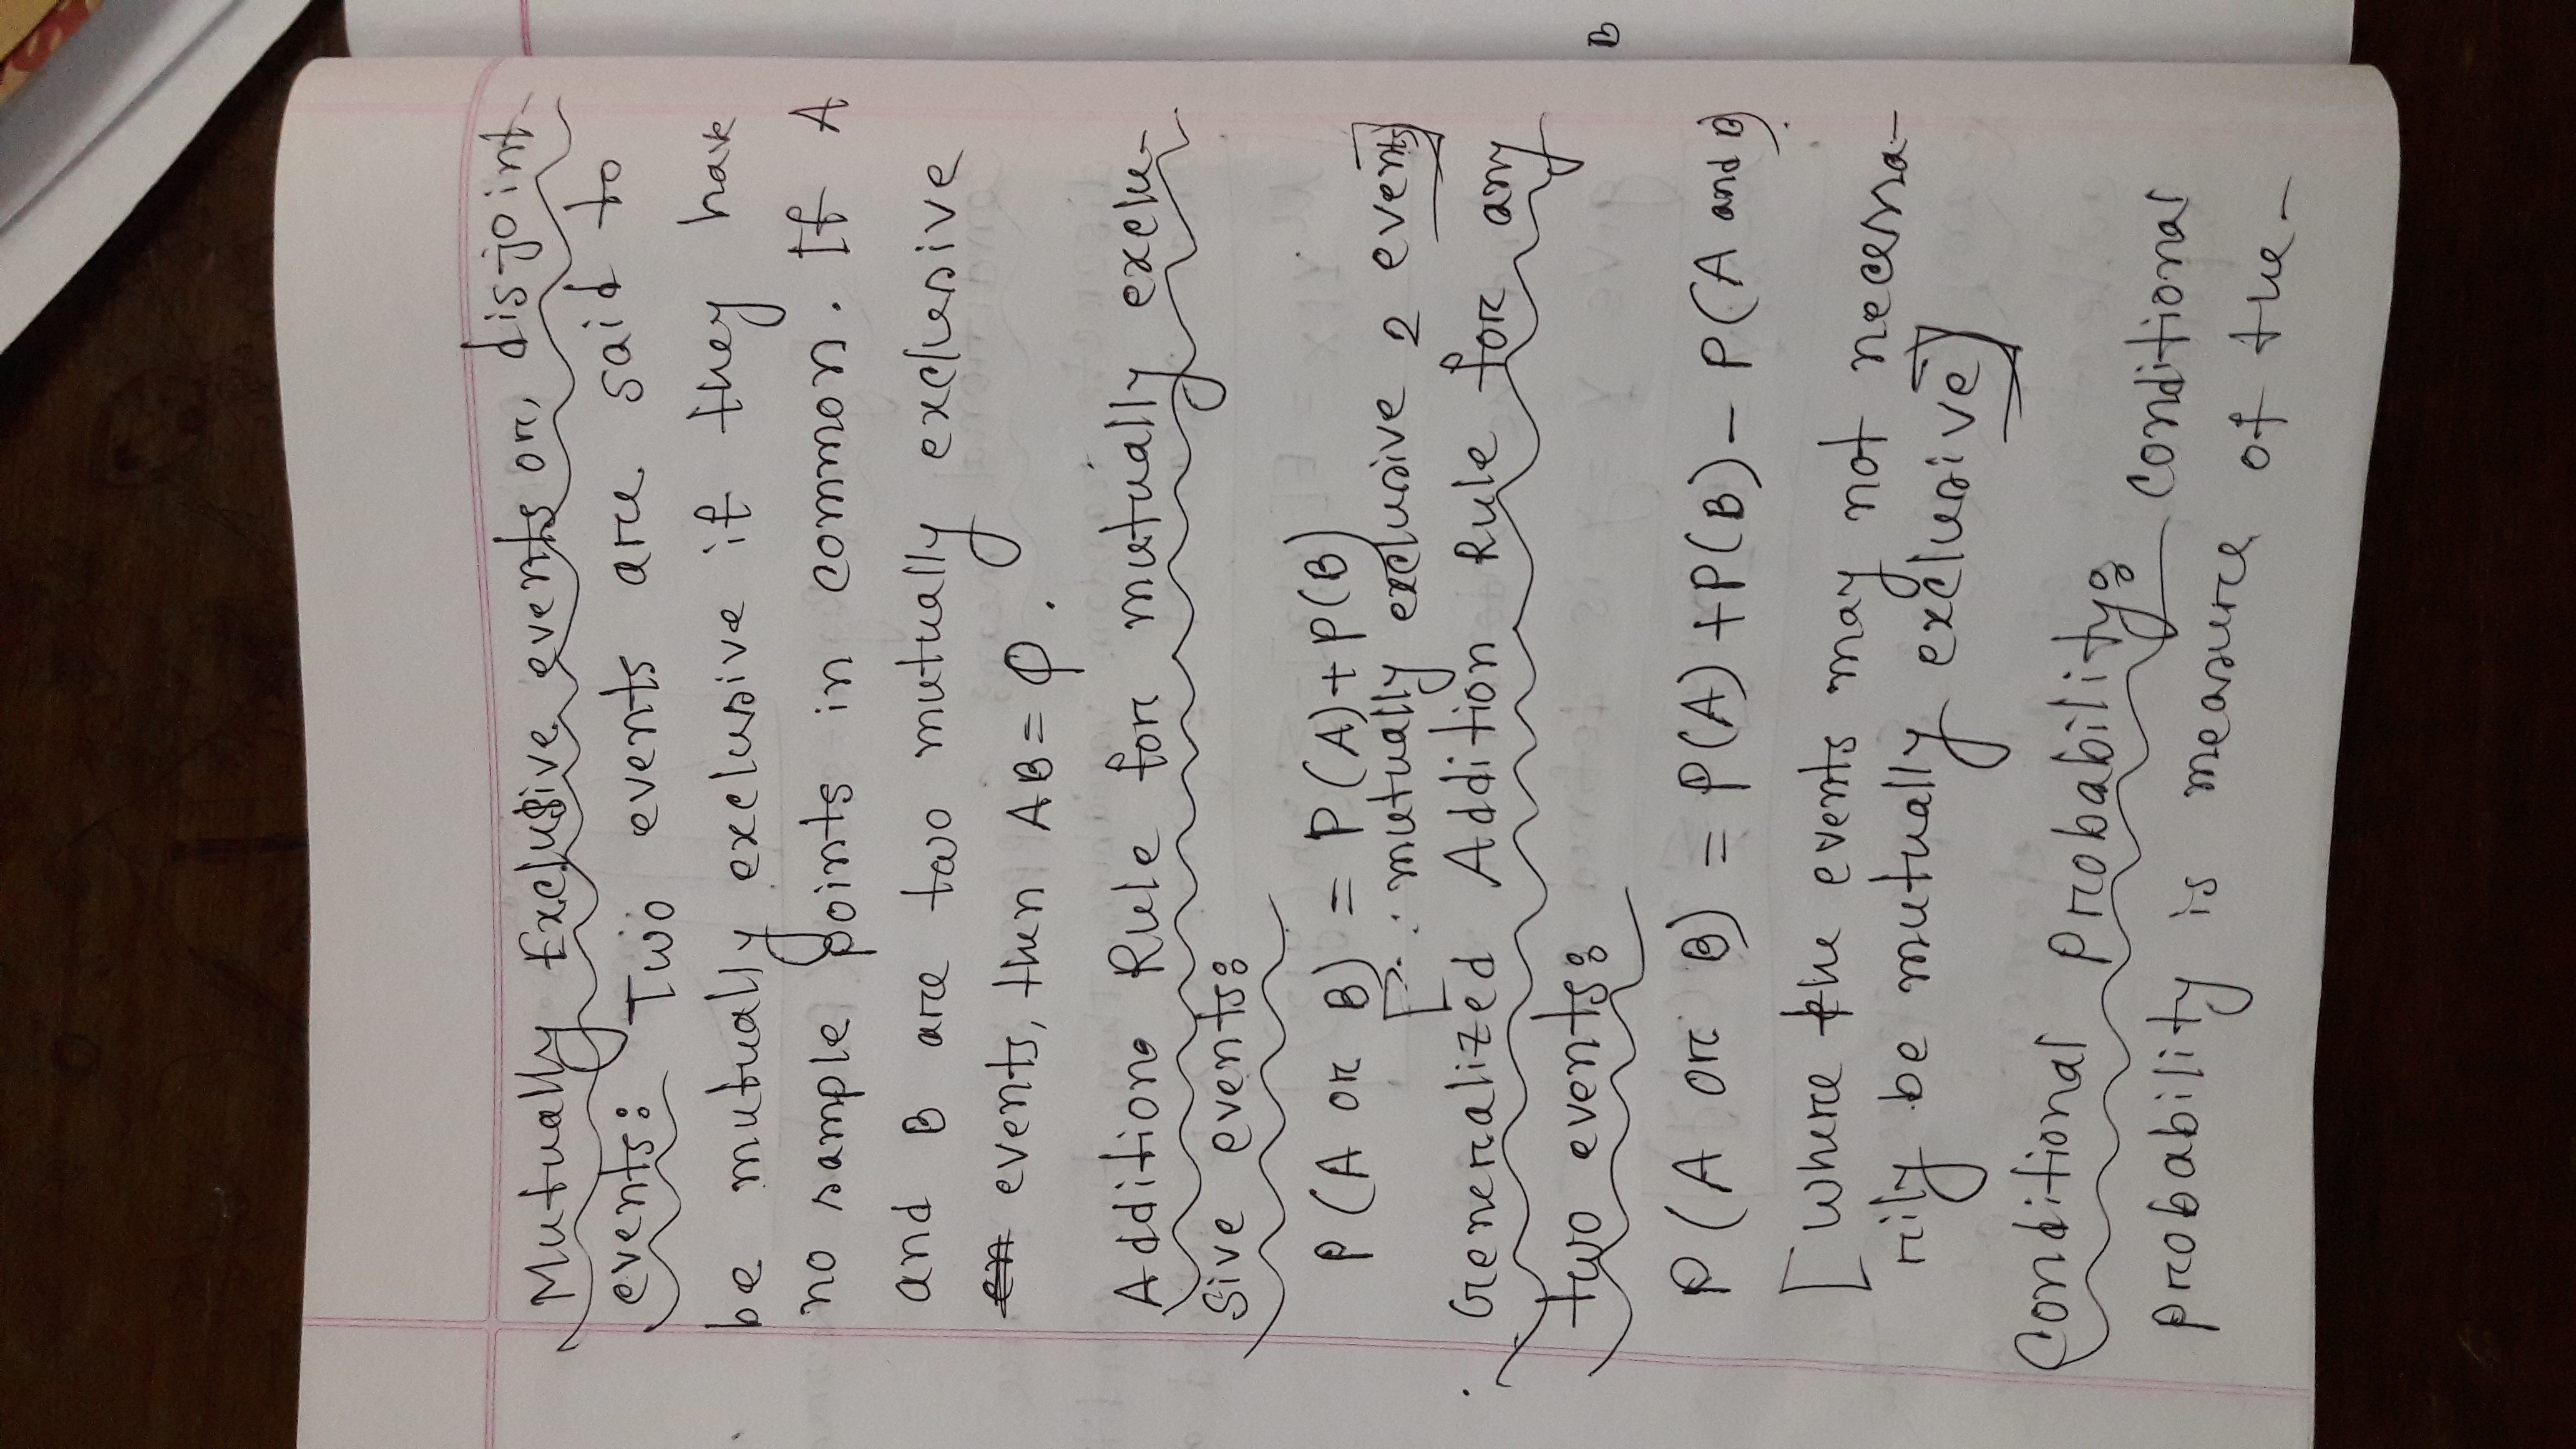 Mutually Exclusive events or, disjoint
events: Two events are said to
be mutually exclusive if they have
no sample points in common. If A
and B are two mutually exclusive
en events, then AB = φ.
Addition Rule for mutually exclu-
sive events:
P(A or B) = P(A)+P(B)
[∵ mutually exclusive 2 events]
Generalized Addition Rule for any
two events:
P(A or B) = P(A)+P(B)- P(A and B)
[Where the events may not necessa-
rily be mutually exclusive]
Conditional Probability: Conditional
probability is measure of the-
B